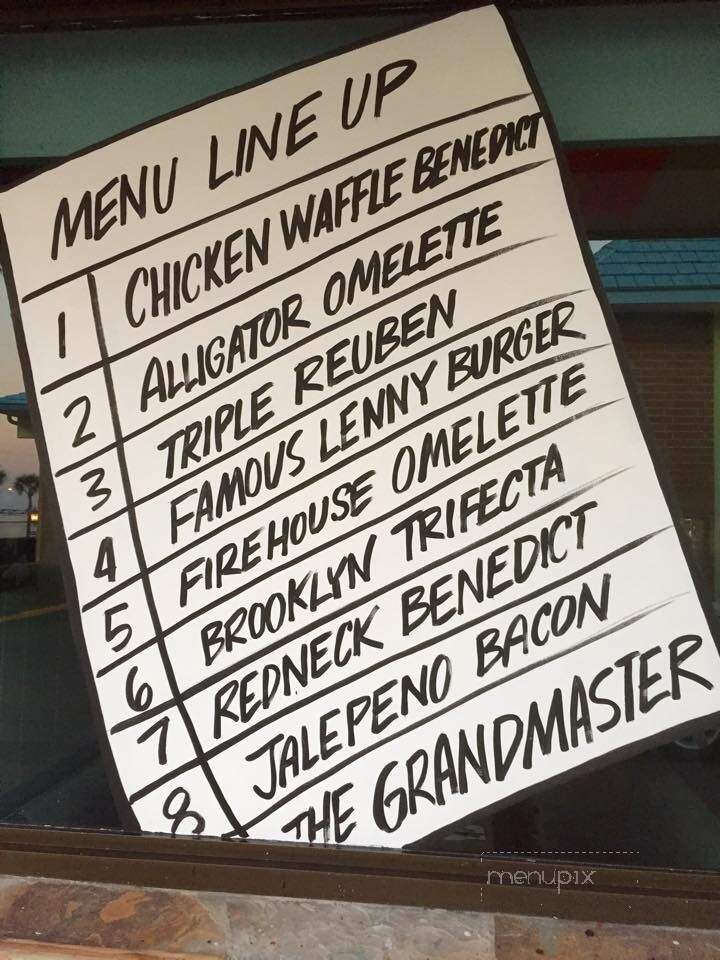 MENU LINE UP
1 CHICKEN WAFFLE BENEDICT
2 ALLIGATOR OMELETTE
3 TRIPLE REUBEN
4 FAMOUS LENNY BURGER
5 FIREHOUSE OMELETTE
6 BROOKLYN TRIFECTA
7 REDNECK BENEDICT
8 JALEPENO BACON
THE GRANDMASTER
menupix